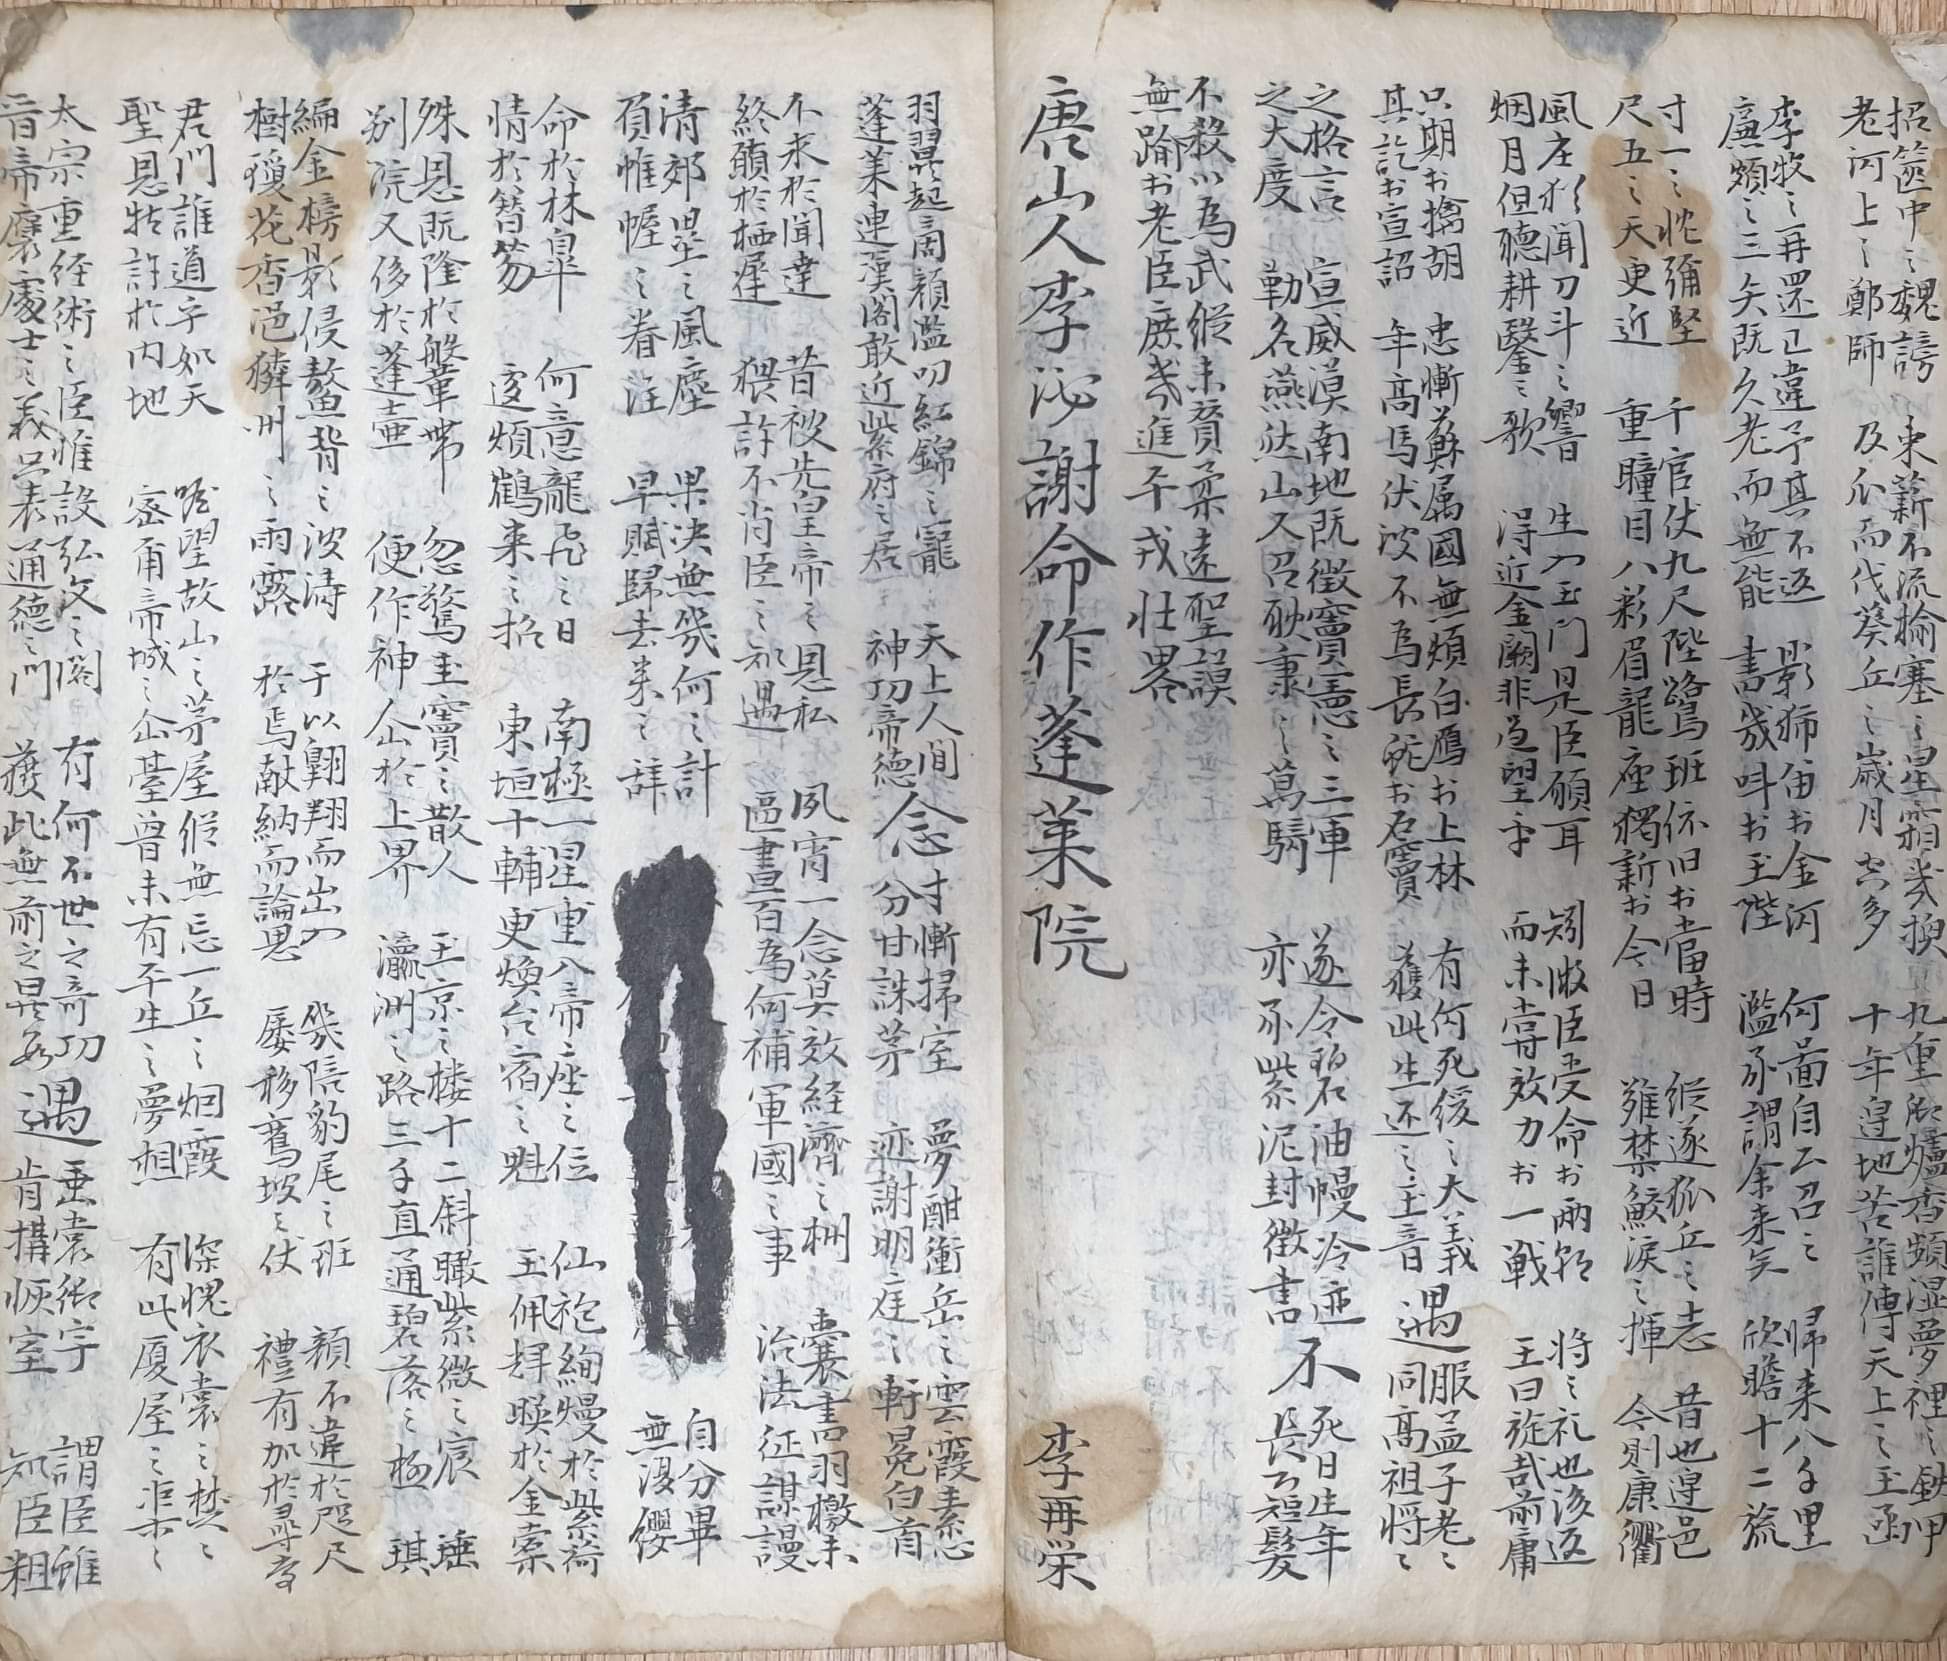 招篋中之魏謗 束薪不流揄塞之星霜幾換 九重御爐香頻湿夢裡之鉄甲
老河上之鄭師 及瓜而代葵丘之歲月空多 十年邊地苦誰傳天上之玉函
李牧之再還已違予其不返 影狮宙於金河 何啚自公召之 歸来八千里
廉頗之三矢既久老而無能 書幾呌於玉陛 濫承謂余来矣 欣瞻十二旒
寸一之忱彌堅 千官仗九尺陛鷺班依旧於當時 縱遂狐丘之志 昔也邊邑
尺五之天更近 重瞳目八彩眉龍座獨新於今日 難禁鮫淚之揮 今則康衢
風庄猶聞刀斗之響 生入玉門是臣願耳 矧做臣受命於兩邦 將之礼也後返
烟月但聽耕鑿之歌 得近金闕非߁望乎 而未嘗效力於一戰 王曰旋哉前庸
只期於擒胡 忠慚蘇属國無煩白鴈於上林 有何死綏之大義 遇服孟子老之
其訖於宣詔 年髙馬伏波不為長蛇於石竇 獲此生还之玉音 同高祖將之
之格言 宣威漠南地既徵竇憲之三軍 遂令碧油幔冷 不死日生年
之大度 勒名燕然山又召耿秉之萬騎 亦承紫泥封徵書 長公短髮
不殺以為武縱未賛柔遠聖謨
無踰於老臣庶幾進平戎壯畧
唐山人李泌謝命作蓬莱院 李再栄
羽翼起商顔濫叨紅錦之寵 天上人間 念寸慚掃室 夢酣衡岳之雲霞素志
蓬莱連漢閣敢近紫府之居 神功帝德 分甘誅茅 迹謝明庭之軒冕白首
不求於聞達 昔被先皇帝之恩私 夙宵一念莫效経濟之㭍 囊書羽檄未
終願於栖遲 猥許不肖臣之知遇 區畫百為何補軍國之事 治法征謀謾
清郊壘之風塵 果決無幾何之計 自分畢
頁帷幄之眷注 早賦歸去来之辞 無復纓
命於林皐 何意龍飛之日 南極一星重八帝座之位 仙袍絢熳於紫荷
情於簪笏 遽煩鶴来之招 東垣十輔更煥台宿之魁 玉佩輝暎於金索
殊恩既隆於盤鞶帯 忽驚圭竇之散人 玉京之楼十二斜瞰紫微之宸 埵
别院又侈於蓬壷 便作神仙於上界 瀛洲之路三千直通碧落之極 琪
編金榜影侵鰲背之波涛 于以翺翔而出入 幾陪豹尾之班 顔不違於咫尺
樹瓊花香浥獜洲之雨露 於焉献納而論思 屡移鸞坡之仗 禮有加於尋常
君門誰道乎如天 睠望故山之茅屋縱無忘一丘之烟霞 深愧衣裳之楚之
聖恩特許於内地 密甬帝城之仙臺曾未有平生之夢想 有此厦屋之渠之
太宗重経術之臣惟設弘文之閣 有何不世之竒功 遇 垂裳御宇 謂臣雖
晋帝褒處士之義只表通德之门 獲此無前之異 肯搆恢室 知臣粗